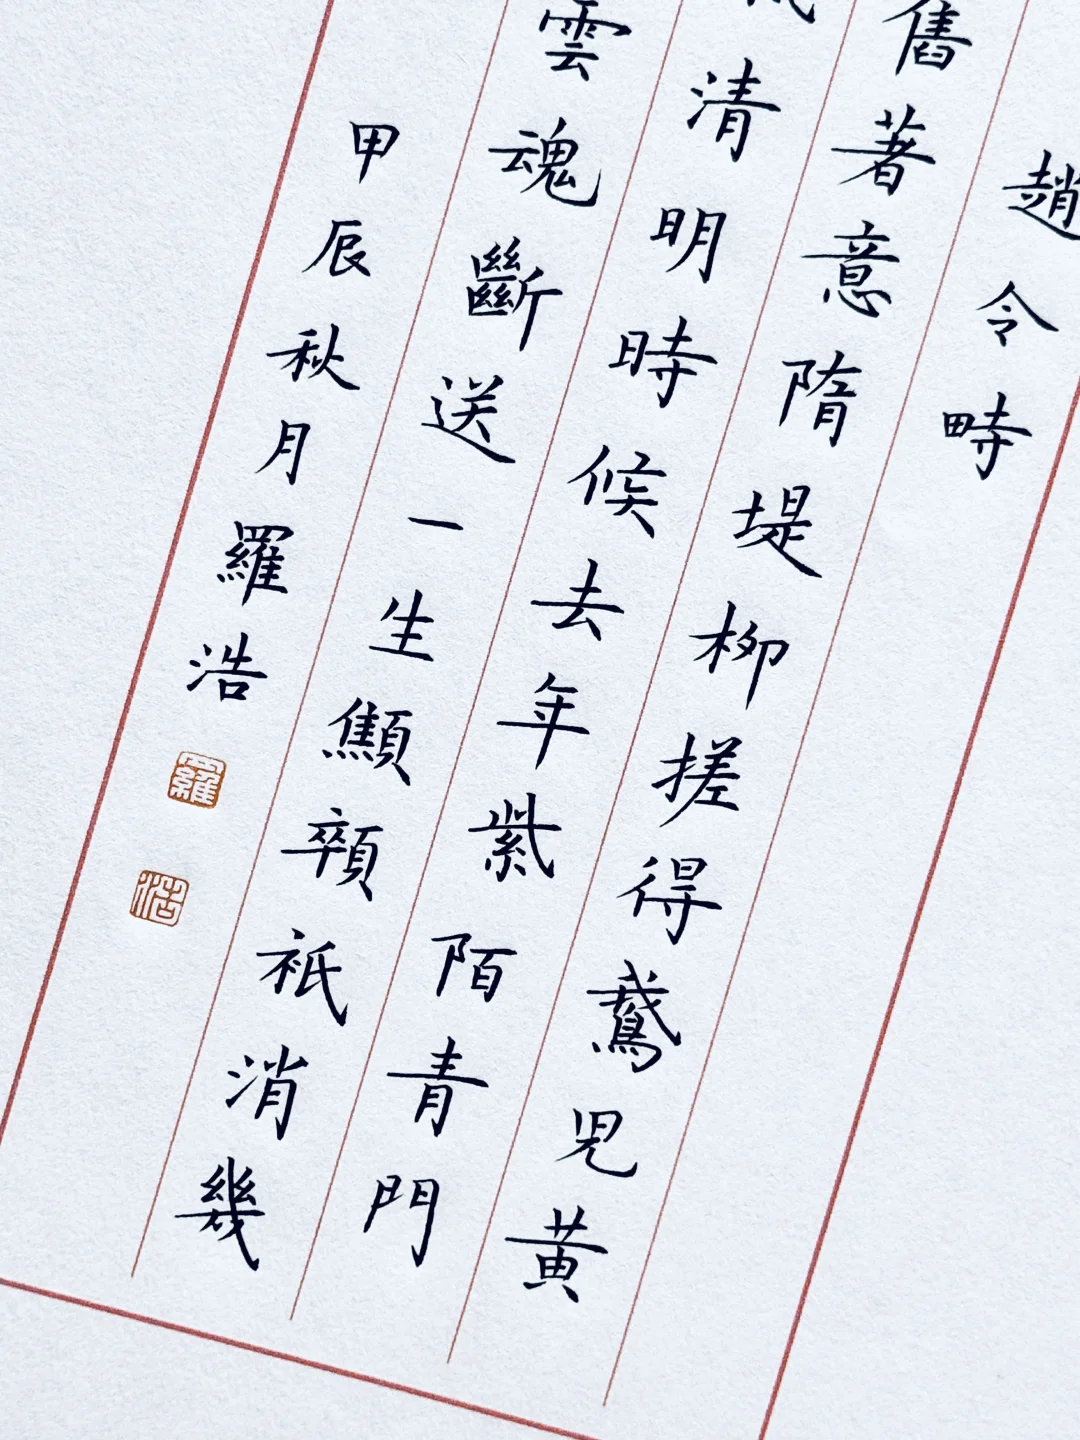 趙令畤
舊著意隋堤柳搓得鵞児黄
清明時候去年紫陌青門
雲魂斷送一生顦顇祇消幾
甲辰秋月羅浩
羅
浩